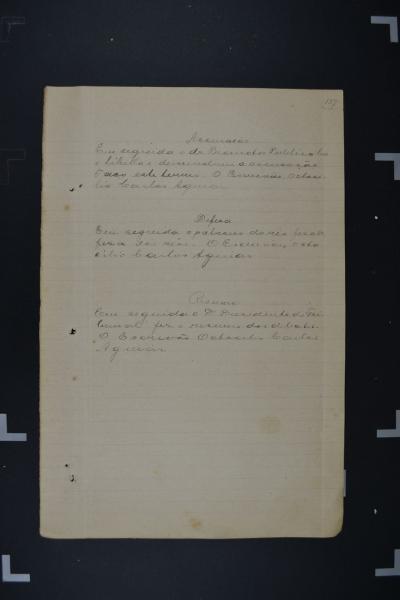 157
Accusação
Em seguida o dr Promotor Publico leu
o libello e desenvolveu a accusação
Faço este termo. O Escrivão, Octaci-
lio Carlos Aguiar
Defesa
Em seguida o patrono do réo
fez a do réo. O Escrivão, Octa
cilio Carlos Aguiar
Resumo
Em seguida o Dr Presidente do Tri
bunal fez o resumo dos debates.
O Escrivão Octacilio Carlos
Aguiar